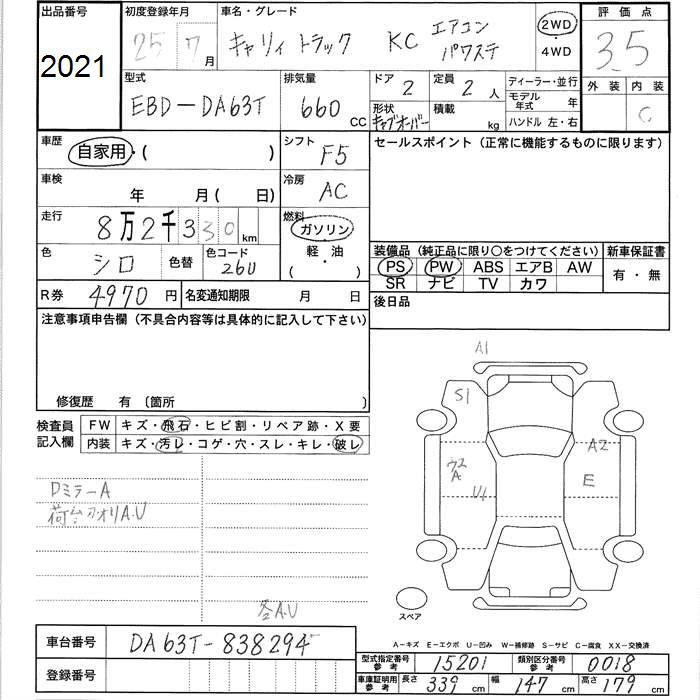 出品番号 2021
初度登録年月 25 7月
車名・グレード キャリィ トラック KC エアコン パワステ
2WD・4WD
評価点 3.5
外装 内装 C
型式 EBD-DA63T
排気量 660 CC
ドア 2 定員 2 人
形状 キャブオーバー 積載 kg
ディーラー・並行
モデル年式 年
ハンドル 左・右
車歴 自家用・( )
シフト F5
セールスポイント(正常に機能するものに限ります)
車検 年 月( 日)
冷房 AC
走行 8万2千330km
燃料 ガソリン・軽・油 ( ・ )
色 シロ 色替 色コード 26U
装備品(純正品に限り○をつけてください) 新車保証書
PS PW ABS エアB AW 有・無
SR ナビ TV カワ
R券 4970円 名変通知期限 月 日
後日品
注意事項申告欄(不具合内容等は具体的に記入して下さい)
修復歴 有 〔箇所 〕
検査員記入欄
FW キズ・飛石・ヒビ割・リペア跡・X要
内装 キズ・汚レ・コゲ・穴・スレ・キレ・破レ
DミラーA
荷台アオリA.U
各A.U
A1
S1
A2
A
U1
E
スペア
A-キズ E-エクボ U-凹み W-補修跡 S-サビ C-腐食 XX-交換済
車台番号 DA63T-838294
登録番号
型式指定番号参考 15201 類別区分番号参考 0018
車庫証明用参考 長さ 339 cm 幅 147 cm 高さ 179 cm